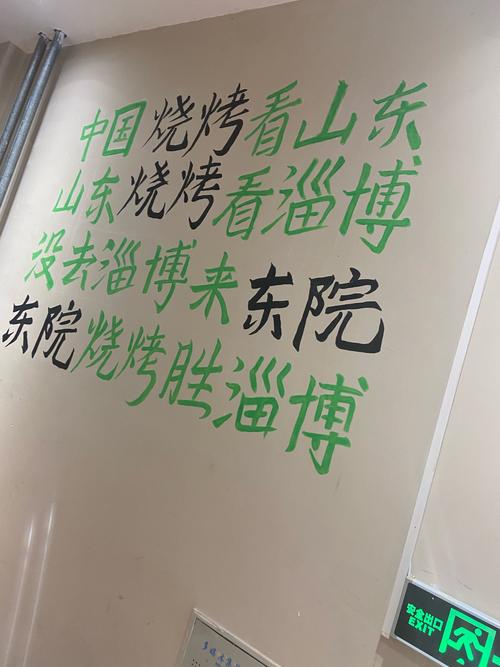 中国烧烤看山东
山东烧烤看淄博
没去淄博来东院
东院烧烤胜淄博
安全出口
EXIT